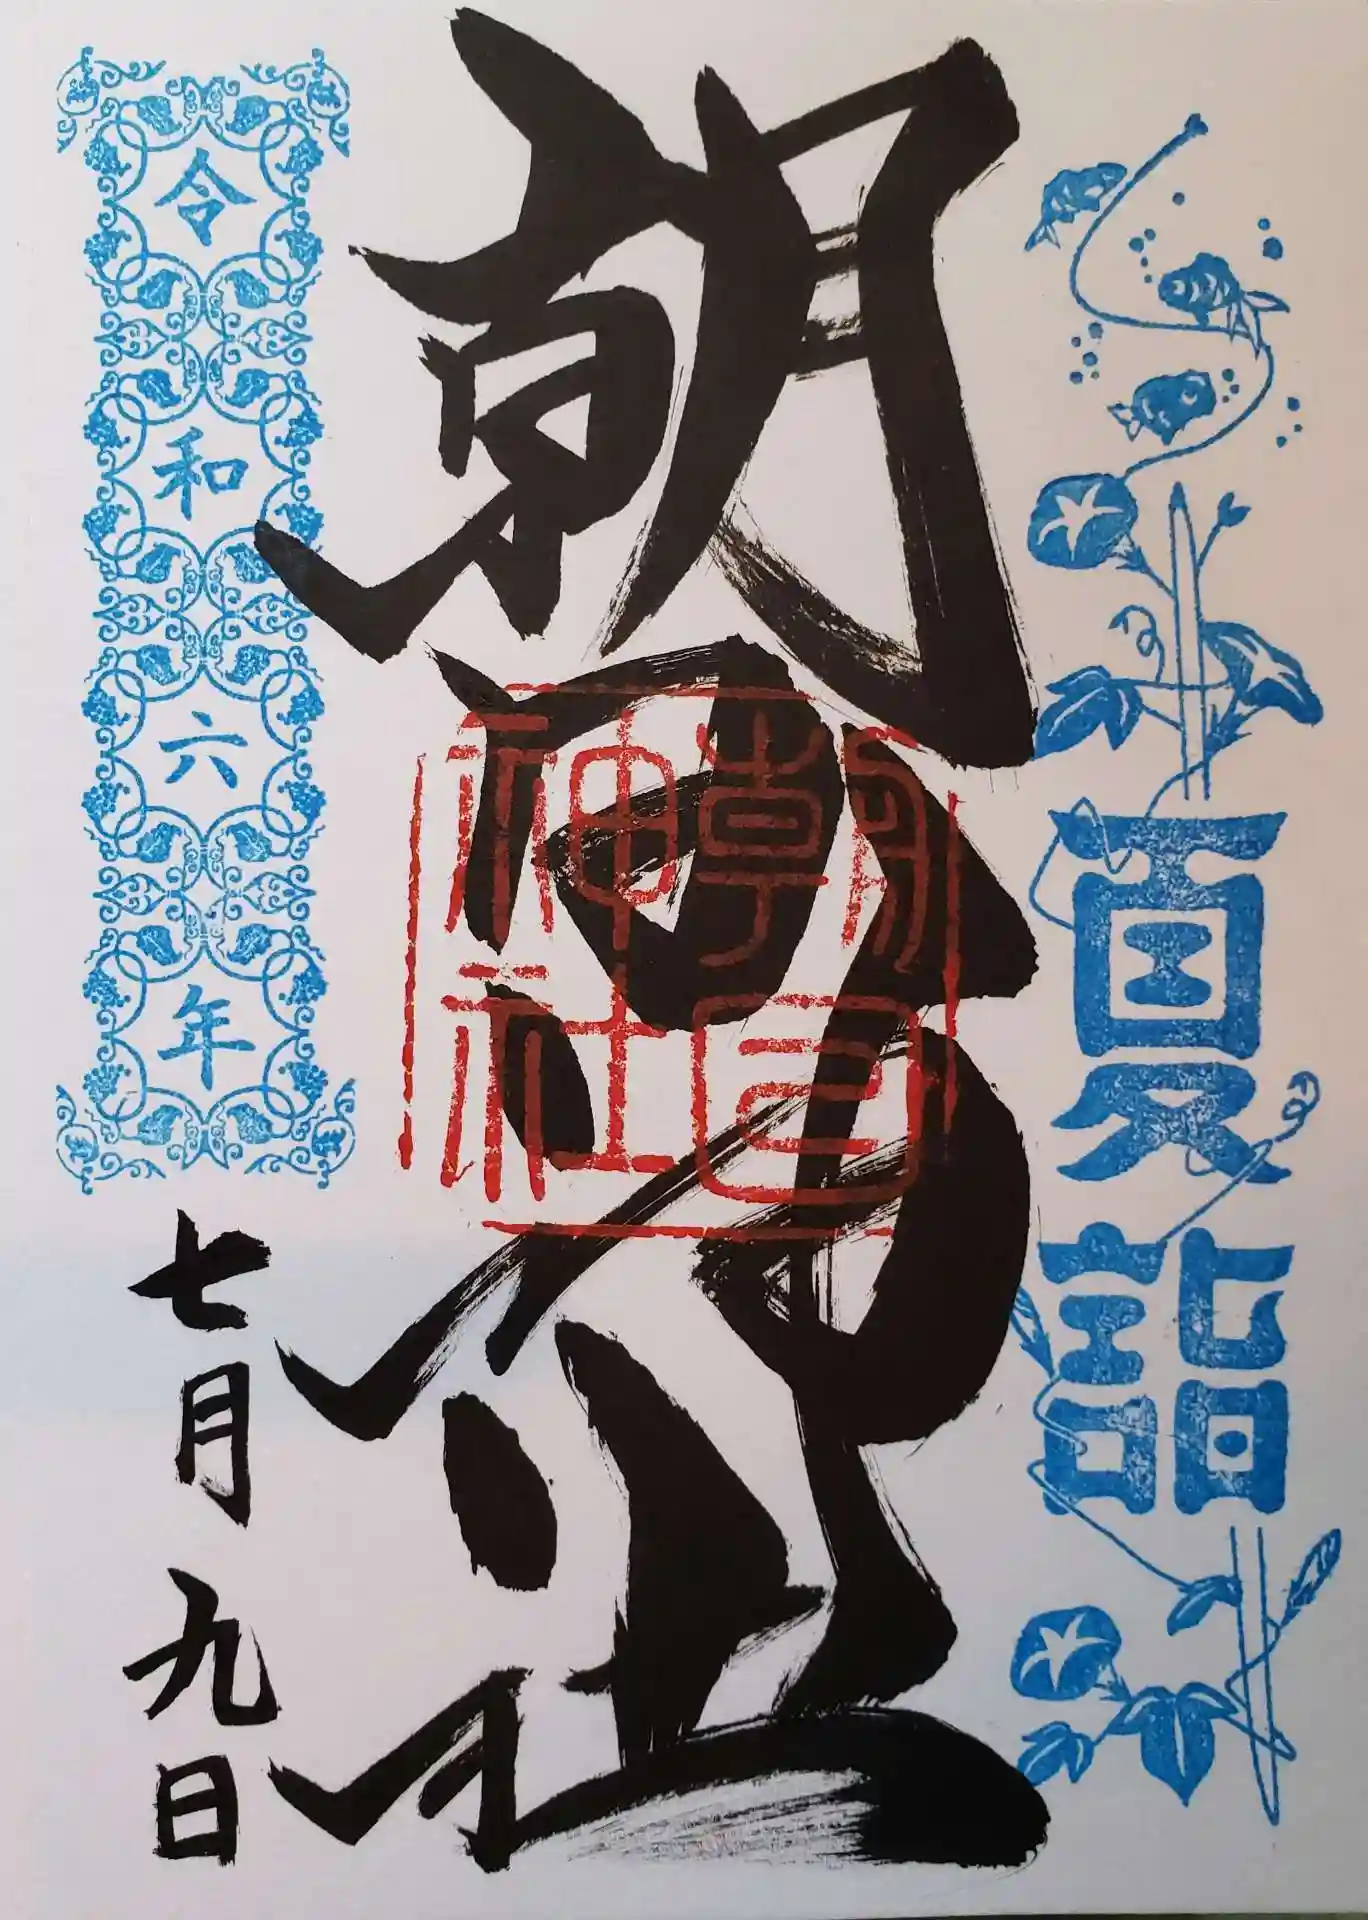 夏詣
朝日神社
朝日神社
令和六年
七月九日